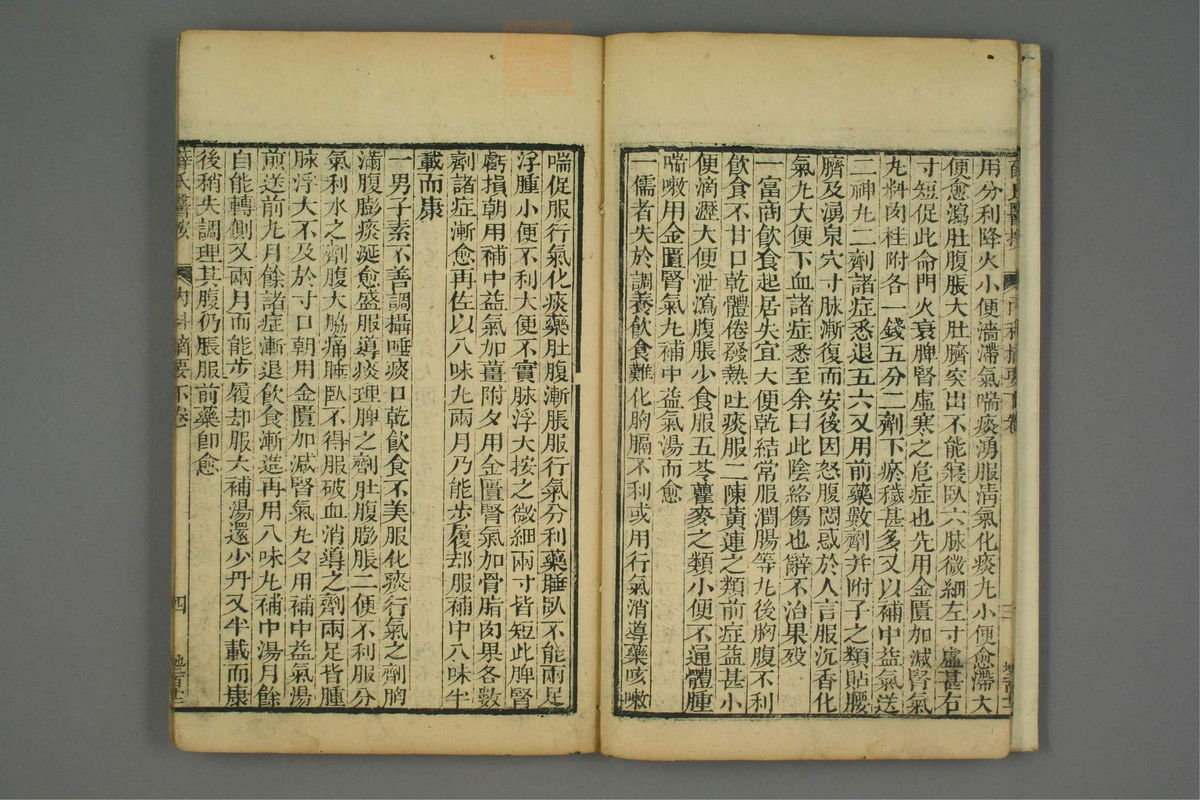 用分利降火小便濇滯氣喘痰湧服清氣化痰丸小便愈滯大
便愈瀉肚腹脹大肚臍突出不能寢臥六脉微細左寸虛甚右
寸短促此命門火衰脾腎虛寒之危症也先用金匱加減腎氣
丸料肉桂附各一錢五分二劑下瘀穢甚多又以補中益氣送
二神丸二劑諸症悉退五六又用前藥數劑并附子之類貼腰
臍及湧泉穴寸脉漸復而安後因怒腹悶惑於人言服沉香化
氣丸大便下血諸症悉至余曰此陰絡傷也辭不治果歿
一富商飲食起居失宜大便乾結常服潤腸等丸後胸腹不利
飲食不甘口乾體倦發熱吐痰服二陳黃連之類前症益甚小
便滴瀝大便泄瀉腹脹少食服五苓瞿麥之類小便不通體腫
喘嗽用金匱腎氣丸補中益氣湯而愈
一儒者失於調養飲食難化胸膈不利或用行氣消導藥咳嗽
喘促服行氣化痰藥肚腹漸脹服行氣分利藥睡臥不能兩足
浮腫小便不利大便不實脉浮大按之微細兩寸皆短此脾腎
虧損朝用補中益氣加薑附夕用金匱腎氣加骨脂肉果各數
劑諸症漸愈再佐以八味丸兩月乃能步履却服補中八味半
載而康
一男子素不善調攝唾痰口乾飲食不美服化痰行氣之劑胸
滿腹膨痰涎愈盛服導痰理脾之劑肚腹膨脹二便不利服分
氣利水之劑腹大脇痛睡臥不得服破血消導之劑兩足皆腫
脉浮大不及於寸口朝用金匱加減腎氣丸夕用補中益氣湯
煎送前丸月餘諸症漸退飲食漸進再用八味丸補中湯月餘
自能轉側又兩月而能步履却服大補湯還少丹又半載而康
後稍失調理其腹仍脹服前藥即愈
薛氏醫按 內科摘要下卷 四